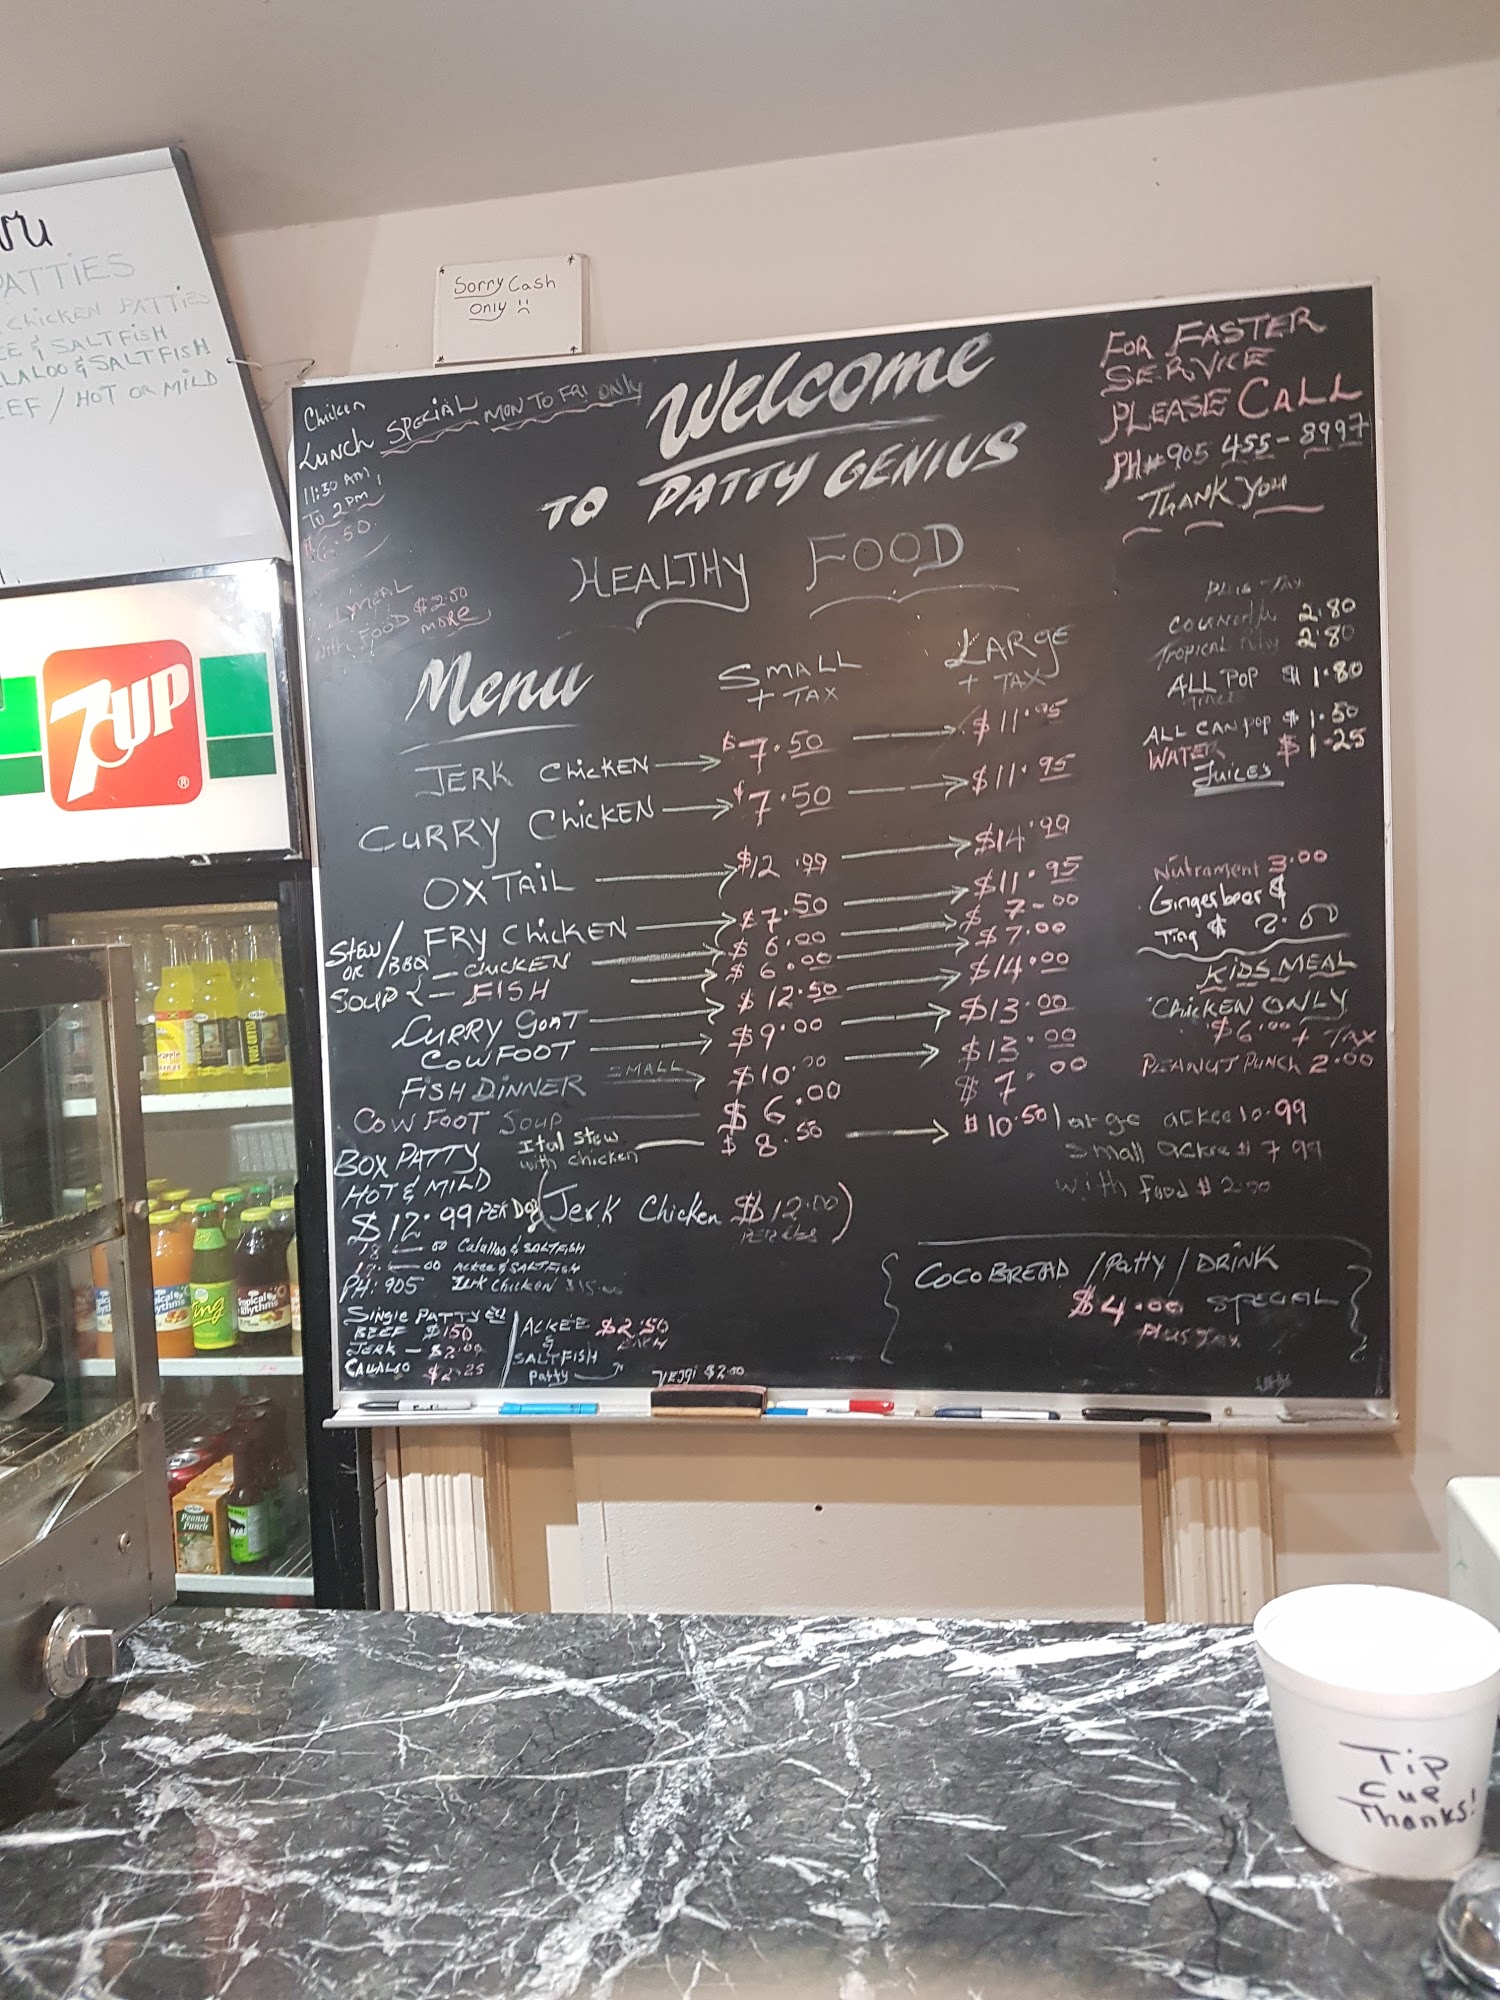 PATTIES
CHICKEN PATTIES
& SALTFISH
& SALTFISH
/ HOT OR MILD
Sorry Cash
Only
7UP
Chicken
Lunch SPECIAL MON TO FRI ONLY
11:30 AM
TO 2PM
Welcome
TO PATTY GENIUS
HEALTHY FOOD
FOR FASTER
SERVICE
PLEASE CALL
PH# 905 455-8997
THANK YOU
with FOOD $2.50
MORE
Menu
SMALL
+ TAX
LARGE
+ TAX
JERK CHICKEN $7.50 $11.95
CURRY CHICKEN $7.50 $11.95
OXTAIL $12.99 $14.99
FRY CHICKEN $7.50 $11.95
STEW OR / BBQ
SOUP
CHICKEN $6.00 $7.00
FISH $6.00 $7.00
CURRY GOAT $12.50 $14.00
COWFOOT $9.00 $13.00
FISH DINNER SMALL $10.00 $13.00
COWFOOT SOUP $6.00 $7.00
Ital stew
with chicken $8.50 $10.50
BOX PATTY
HOT & MILD
$12.99 PER Doz
(Jerk Chicken $12.00)
Calalloo & SALTFISH
Ackee & SALTFISH
PH: 905 Jerk Chicken
Single PATTY
BEEF $1.50
JERK - $2.00
CALALOO $2.25
ACKEE $2.50
& EACH
SALTFISH
Patty
VEggi
Plus Tax
2.80
Tropical 2.80
ALL POP $1.80
ALL CAN POP $1.50
WATER $1.25
Juices
Nutrament 3.00
Gingerbeer $
Ting $ 2.00
KIDS MEAL
CHICKEN ONLY
$6.00 + TAX
PEANUT PUNCH 2.00
large ackee 10.99
Small ackee $7.99
with food $2.00
COCOBREAD / Patty / DRINK
$4.00 SPECIAL
Plus Tax
Tropical
Rhythms
Ting
Tropical
Rhythms
Peanut
Punch
Tip
Cup
Thanks!